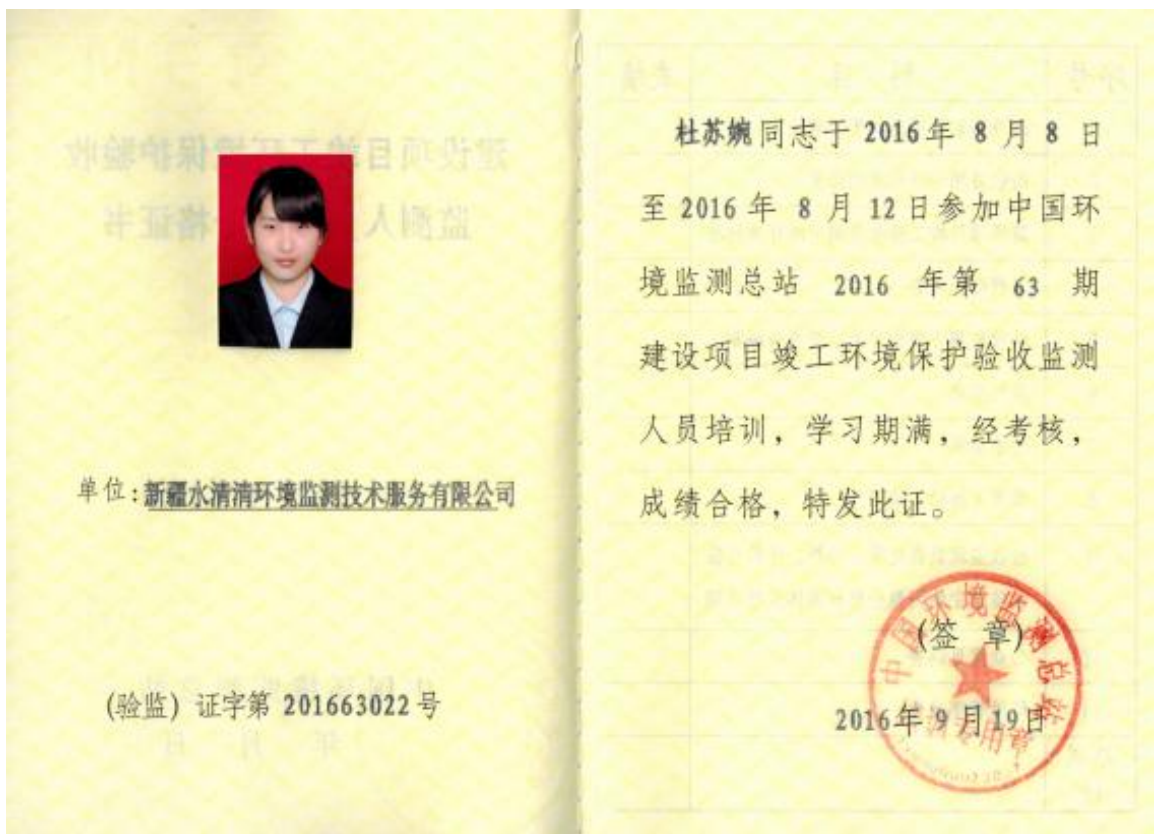 单位:新疆水清清环境监测技术服务有限公司
(验监) 证字第 201663022 号
杜苏婉同志于 2016年 8 月 8 日
至 2016 年 8 月 12 日参加中国环
境监测总站 2016 年第 63 期
建设项目竣工环境保护验收监测
人员培训，学习期满，经考核，
成绩合格，特发此证。
中国环境监测总站
(签 章)
2016年 9 月 19 日
专用章